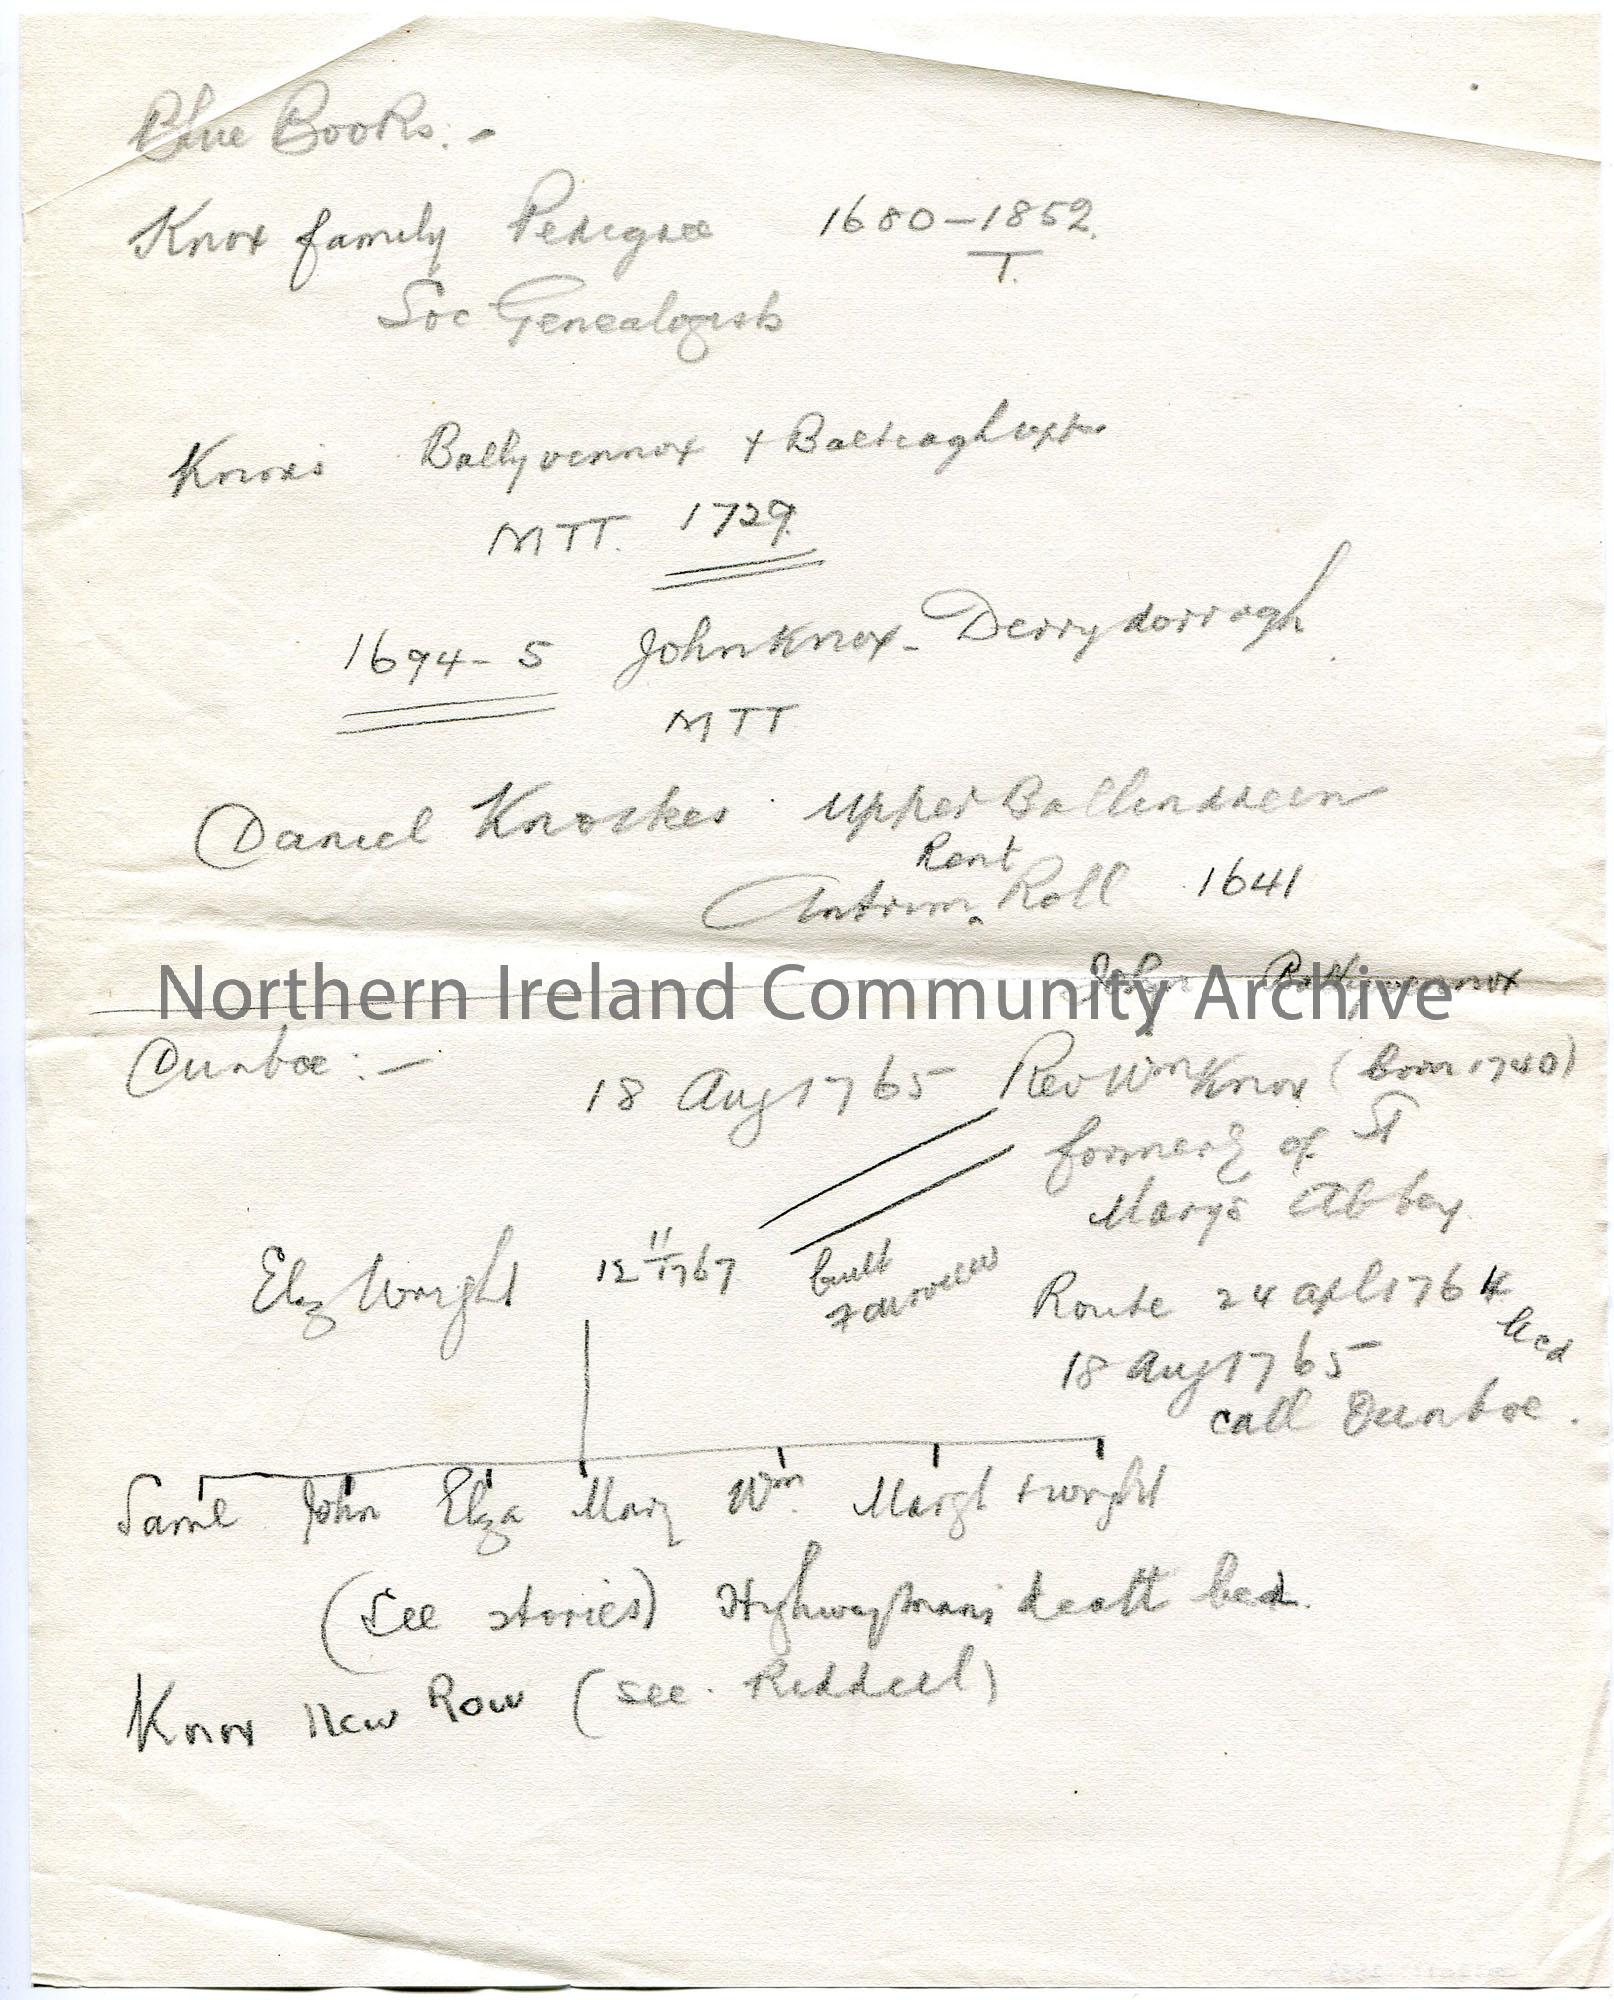 Blue Books:-
Knox family Pedigree 1680-1852.
T.
Soc Genealogists
Knoxs Ballyvennox +
MTT. 1729.
1694-5 John Knox - Derrydorragh
MTT
Daniel Knockes upper Ballindreen
Rent
Antrim Roll 1641
John Ballyvennox
Northern Ireland Community Archive
Dunboe:- 18 Aug 1765 Rev Wm Knox (born 1740)
formerly of St
Marys Abbey
Eliz Wright 12 11/1767 built
Route 24 apl 1764
18 Aug 1765
call Dunboe.
Saml John Eliza Mary Wm. Margt + wright
(See stories) Highwaymans death bed.
Knox New Row (see. Riddell)